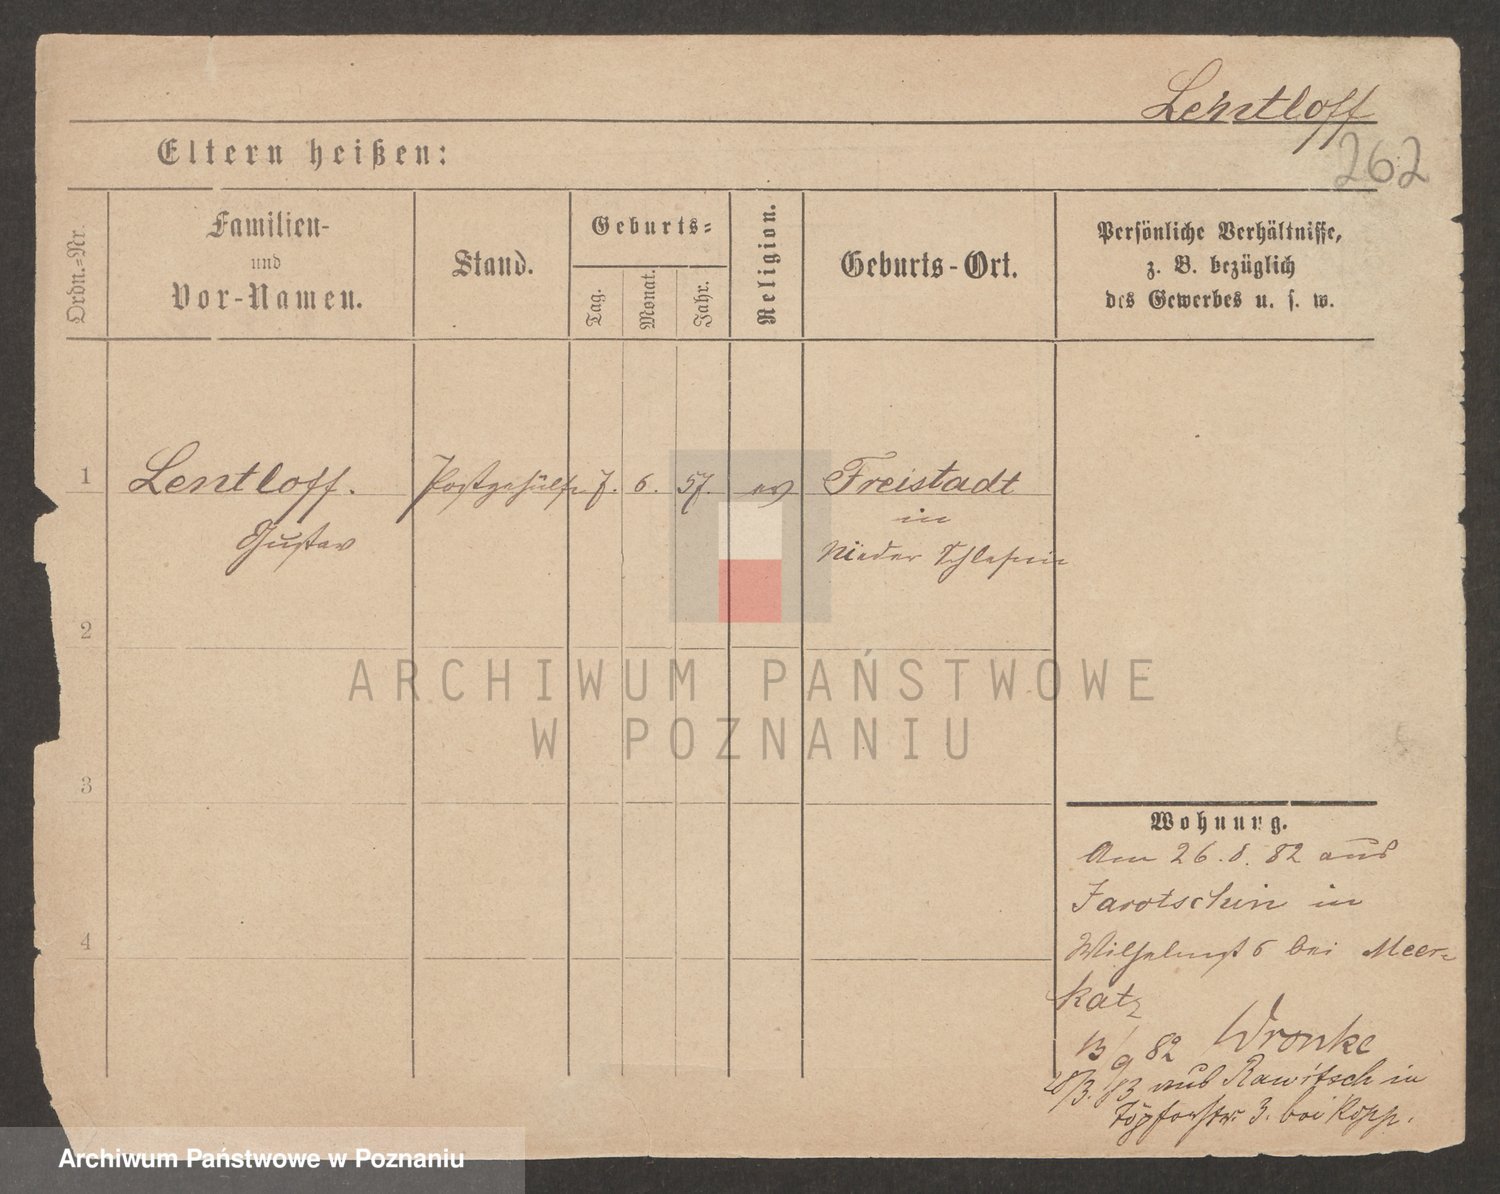 Lentloff
262
Eltern heißen:
Ordn.=Nr.
Familien-
und
Vor-Namen.
Stand.
Geburts=
Tag.
Monat.
Jahr.
Religion.
Geburts-Ort.
Persönliche Verhältnisse,
z. B. bezüglich
des Gewerbes u. s. w.
1 Lentloff. Postgehülfe 7. 6. 57. ev Freistadt
Gustav
in
Nieder Schlesien
2
3
4
ARCHIWUM PAŃSTWOWE
W POZNANIU
Wohnung.
Am 26. 8. 82 aus
Jarotschin in
Wilhelmst 6 bei Meer=
katz
13/9 82 Wronke
/3. 83 aus Rawitsch in
Töpferstr. 3. bei Kopp.
Archiwum Państwowe w Poznaniu